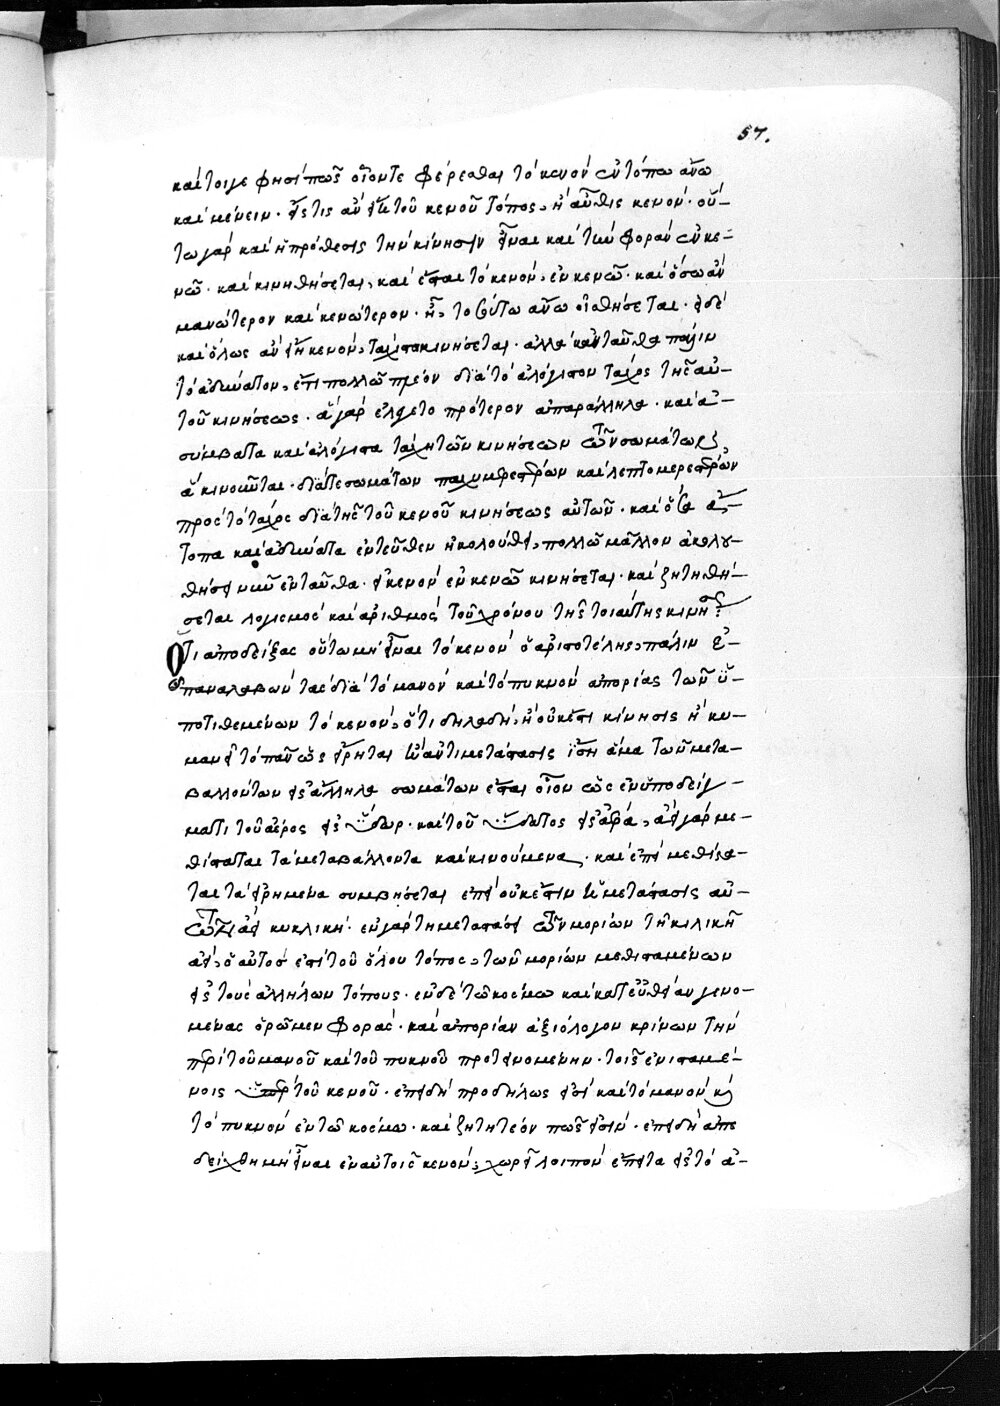 57.
καί τοι γε φησὶ πῶς οἷόν τε φέρεσθαι τὸ κενὸν ἐν τόπω ἄνω
καὶ μένειν. εἴ τις ἂν εἴη τοῦ κενοῦ τόπος, ἢ αὖθις κενόν. οὕ-
τω γὰρ καὶ ἡ πρόθεσις τὴν κίνησιν εἶναι καὶ τὴν φορὰν ἐν κε-
νῶ. καὶ κινηθήσεται, καὶ ἔσται τὸ κενὸν, ἐν κενῶ. καὶ ὅσω ἂν
μανώτερον καὶ κενώτερον. ᾖ, τοσούτω ἄνω οἰσθήσεται. εἰ δὲ
καὶ ὅλως ἂν εἴη κενὸν, τάχιστα κινήσεται. ἀλλὰ κἀνταῦθα πάλιν
τὸ ἀδύνατον, ἔτι πολλῶ πλέον διὰ τὸ ἀλόγιστον τάχος τῆς αὐ-
τοῦ κινήσεως. ἃ γὰρ ἐλέγετο πρότερον ἀπαράλληλα. καὶ ἀ-
σύμβατα καὶ ἀλόγιστα τάχη τῶν κινήσεων τῶν σωμάτων,
ἃ κινοῦνται. διά τε σωμάτων παχυμερεστέρων καὶ λεπτομερεστέρων
πρὸς τὸ τάχος διὰ τῆς τοῦ κενοῦ κινήσεως αὐτῶν. καὶ ὅσα ἄ-
τοπα καὶ ἀδύνατα ἐντεῦθεν ἠκολούθει, πολλῶ μᾶλλον ἀκολου-
θήσει νῦν ἐνταῦθα. εἰ κενὸν ἐν κενῶ κινήσεται. καὶ ζητηθή-
σεται λογισμὸς καὶ ἀριθμὸς τοῦ χρόνου τῆς τοιαύτης κινήσεως
Ὅτι ἀποδείξας οὕτω μὴ εἶναι τὸ κενὸν ὁ ἀριστοτέλης, πάλιν ἐ-
παναλαβὼν τὰς διὰ τὸ μανὸν καὶ τὸ πυκνὸν ἀπορίας τῶν ὑ-
ποτιθεμένων τὸ κενὸν, ὅτι δηλαδὴ, ἢ οὐκ ἔστι κίνησις ἢ κυ-
μανεῖ τὸ πᾶν ὡς εἴρηται ἢ ἀντιμετάστασις ἴση ἅμα τῶν μετα-
βαλλόντων εἰς ἄλληλα σωμάτων ἔσται οἷον ὡς ἐν ὑποδείγ-
ματι τοῦ ἀέρος εἰς ὕδωρ. καὶ τοῦ ὕδατος εἰς ἀέρα, ἀεὶ γὰρ με-
θίσταται τὰ μεταβάλλοντα καὶ κινούμενα. καὶ ἐπεὶ μεθίστα-
ται τὰ εἰρημένα συμβήσεται ἐπεὶ οὐκ ἔστιν ἡ μετάστασις αὐ-
τῶν ἀεὶ κυκλική. ἐν γὰρ τῆ μεταστάσει τῶν μορίων τῆ κυκλικῆ
ἀεὶ, ὁ αὐτὸς ἐπὶ τοῦ ὅλου τόπος, τῶν μορίων μεθισταμένων
εἰς τοὺς ἀλλήλων τόπους. ἐν δὲ τῶ κόσμω καὶ κατ' εὐθεῖαν γενο-
μένας ὁρῶμεν φοράς. καὶ ἀπορίαν ἀξιόλογον κρίνων τὴν
περὶ τοῦ μανοῦ καὶ τοῦ πυκνοῦ προτεινομένην. τοῖς ἐνισταμέ-
νοις ὑπὲρ τοῦ κενοῦ. ἐπειδὴ προδήλως ἐστὶ καὶ τὸ μανὸν καὶ
τὸ πυκνὸν ἐν τῶ κόσμω. καὶ ζητητέον πῶς ἐστίν. ἐπειδὴ ἀπε
δείχθη μὴ εἶναι ἐν αὐτοῖς κενόν, χωρεῖ λοιπὸν ἔπειτα εἰς τὸ ἀ-